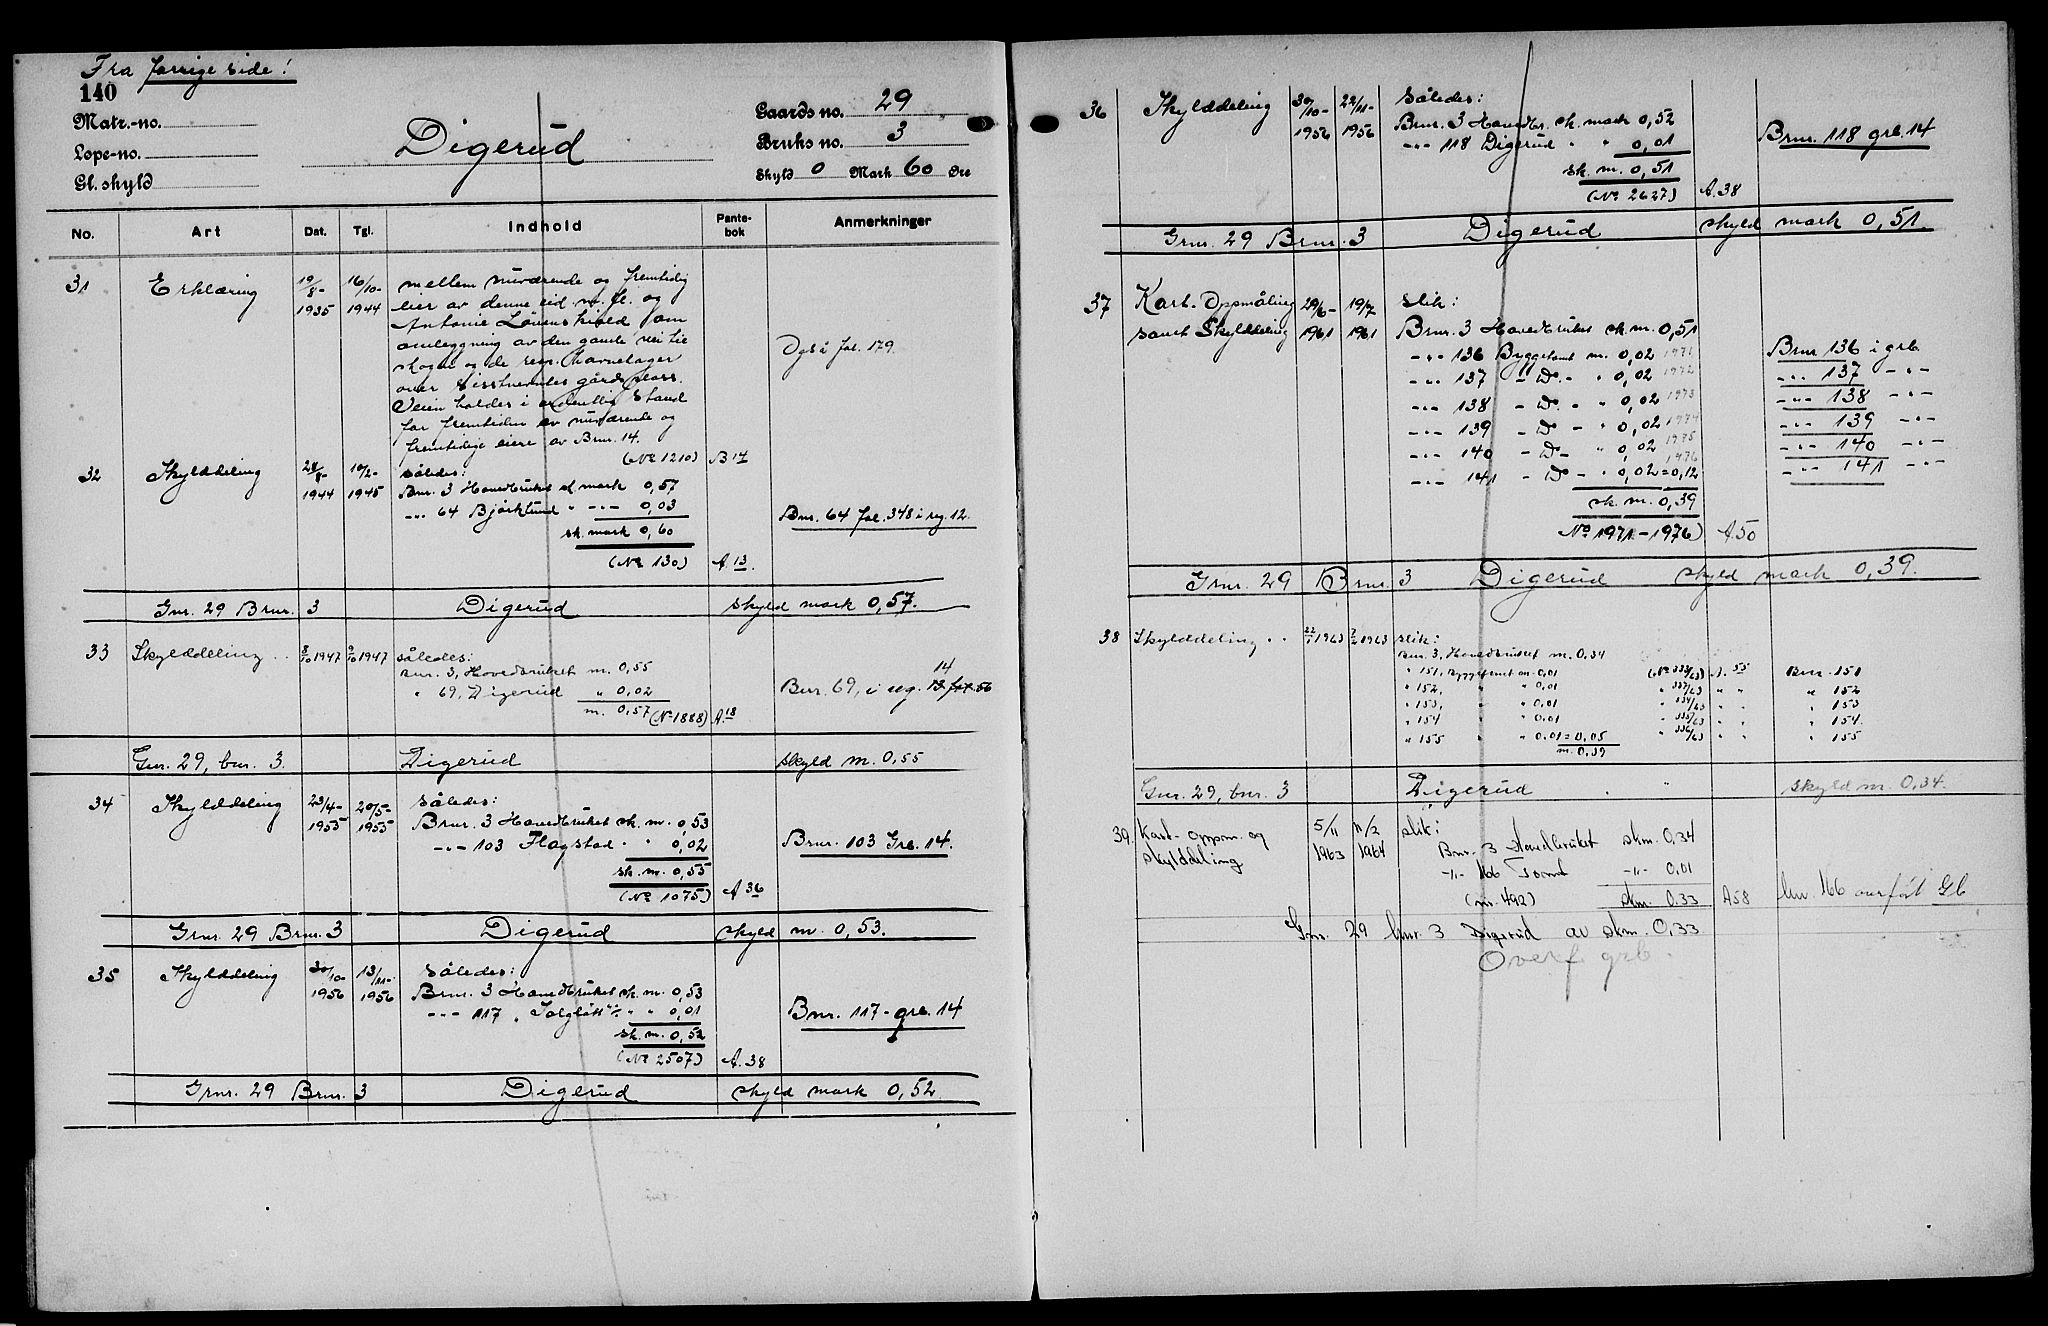 Fra forrige side!
140
Matr.-no.
Løpe-no.
Gl. skyld
Digerud
Gaards no. 29
Bruks no. 3
Skyld 0 Mark 60 Øre
No. Art Dat. Tgl. Indhold Pante-bok Anmerkninger
31 Erklæring 10/8- 1935 16/10- 1944 mellem nuværende og fremtidig
eier av denne eid m. fl. og
Antonie Løvenskiold om
omlegning av den gamle vei til
skogen og de havnelager
over sistnevntes gårdsplass.
Dgb i fol. 179.
Veien holdes i ordentlig stand
for fremtiden av nuværende og
fremtidige eiere av Brnr. 14.
(No 1210) B 17
32 Skylddeling 28/8- 1944 10/2- 1945 således:
Bnr. 3 Hovedbruket sk. mark 0,57
-"- 64 Bjørklund " -"- 0,03
Bnr. 64 fol. 348 i reg. 12.
sk. mark 0,60
(No 130) A 13.
Gnr. 29 Brnr. 3 Digerud skyld mark 0,57.
33 Skylddeling .. 8/10 1947 9/10 1947 således:
Bnr. 3, Hovedbruket m. 0,55
" 69, Digerud " 0,02
m. 0,57 (No 1888) A 18
Bnr. 69, i reg. 13 14 fol. 56
Gnr. 29, bnr. 3. Digerud skyld m. 0,55
34 Skylddeling 23/4- 1955 20/5- 1955 Således:
Brnr. 3 Hovedbruket sk. m. 0,53
-"- 103 Flagstad " " 0,02
Brnr. 103 Grb. 14.
sk. m. 0,55
(No 1075) A 36
Grnr. 29 Brnr. 3 Digerud skyld m. 0,53.
35 Skylddeling 30/10- 1956 13/11- 1956 Således:
Brnr. 3 Hovedbruket sk. m. 0,53
-"- 117 "Solgløtt" " " 0,01
Bnr. 117 - grb. 14
sk. m. 0,52
(No 2507) A. 38
Grnr. 29 Brnr. 3 Digerud skyld mark 0,52.
36 Skylddeling 30/10- 1956 22/11- 1956 Således:
Brnr. 3 Hovedbr. sk. mark 0,52
-"- 118 Digerud " " 0,01
Brnr. 118 grb. 14
sk. m. 0,51
(No 2627) A. 38
Grnr. 29 Brnr. 3 Digerud skyld mark 0,51.
37 Kart-Oppmåling samt Skylddeling 29/6- 1961 19/7 1961 Slik:
Brnr. 3 Hovedbruket sk. m. 0,51
-"- 136 Byggetomt m. 0,02 1971 Brnr 136 i grb
-"- 137 -"- Do - " 0,02 1972 -"- 137 -"-
-"- 138 - Do - " 0,02 1973 -"- 138 -"-
-"- 139 - Do - " 0,02 1974 -"- 139 -"-
-"- 140 - Do - " 0,02 1975 -"- 140 -"-
-"- 141 - Do - " 0,02 = 0,12 1976 -"- 141 -"-
sk. m. 0,39
No 1971 - 1976) A.50
Grnr. 29 Brnr. 3 Digerud skyld mark 0,39.
38 Skylddeling .. 22/1 1963 1963 slik:
Bnr. 3, Hovedbruket m. 0,34
" 151, Byggetomt m. 0,01 (No 332/63) A. 55 Bnr. 151
" 152, " " 0,01 " 333/63 " " " 152
" 153, " " 0,01 " 334/63 " " " 153
" 154 " " 0,01 " 335/63 " " " 154.
" 155 " " 0,01 = 0,05 " 336/63 " " " 155
m. 0,39
Gnr. 29, bnr. 3 Digerud " skyld m. 0,34.
39. Kart-oppm. og skylddeling 5/11 1963 11/2 1964 slik:
Bnr. 3 Hovedbruket skm. 0,34
-"- 166 Tomt -"- 0,01
(nr. 492) skm. 0.33 A58 bnr. 166 overført Gb
Gnr. 29 bnr 3 Digerud av skm. 0,33
Overf. grb.